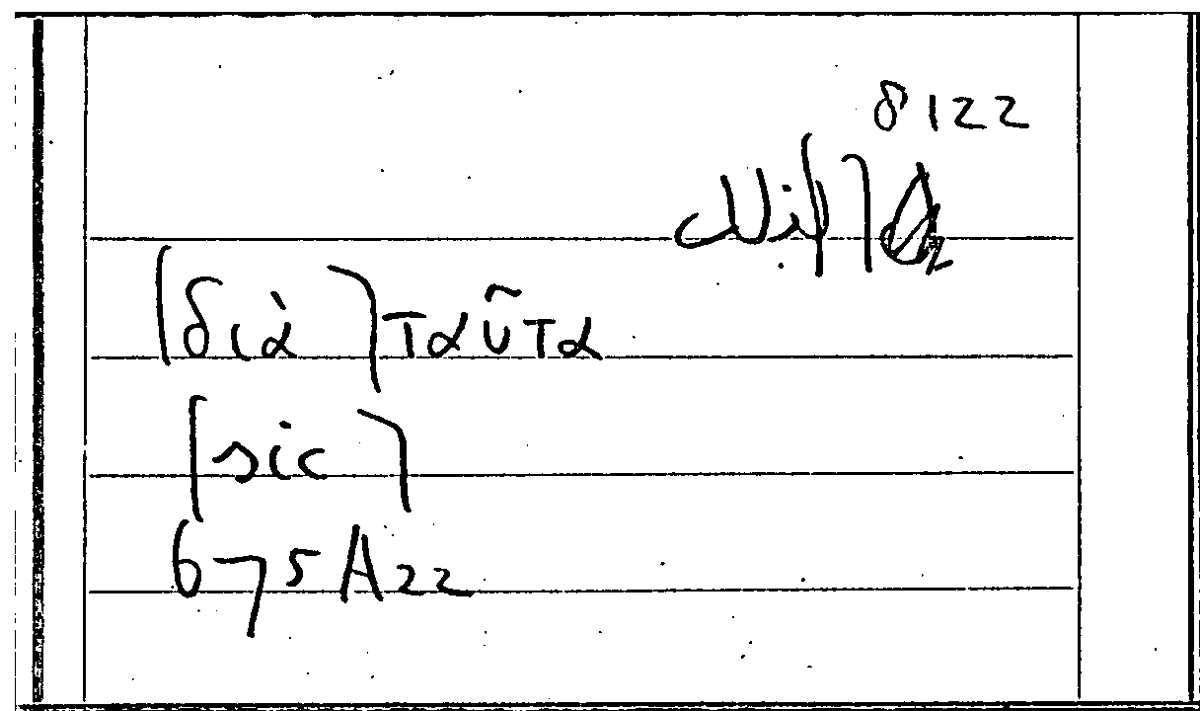 8122
[διὰ] ταῦτα
[sic]
675A22